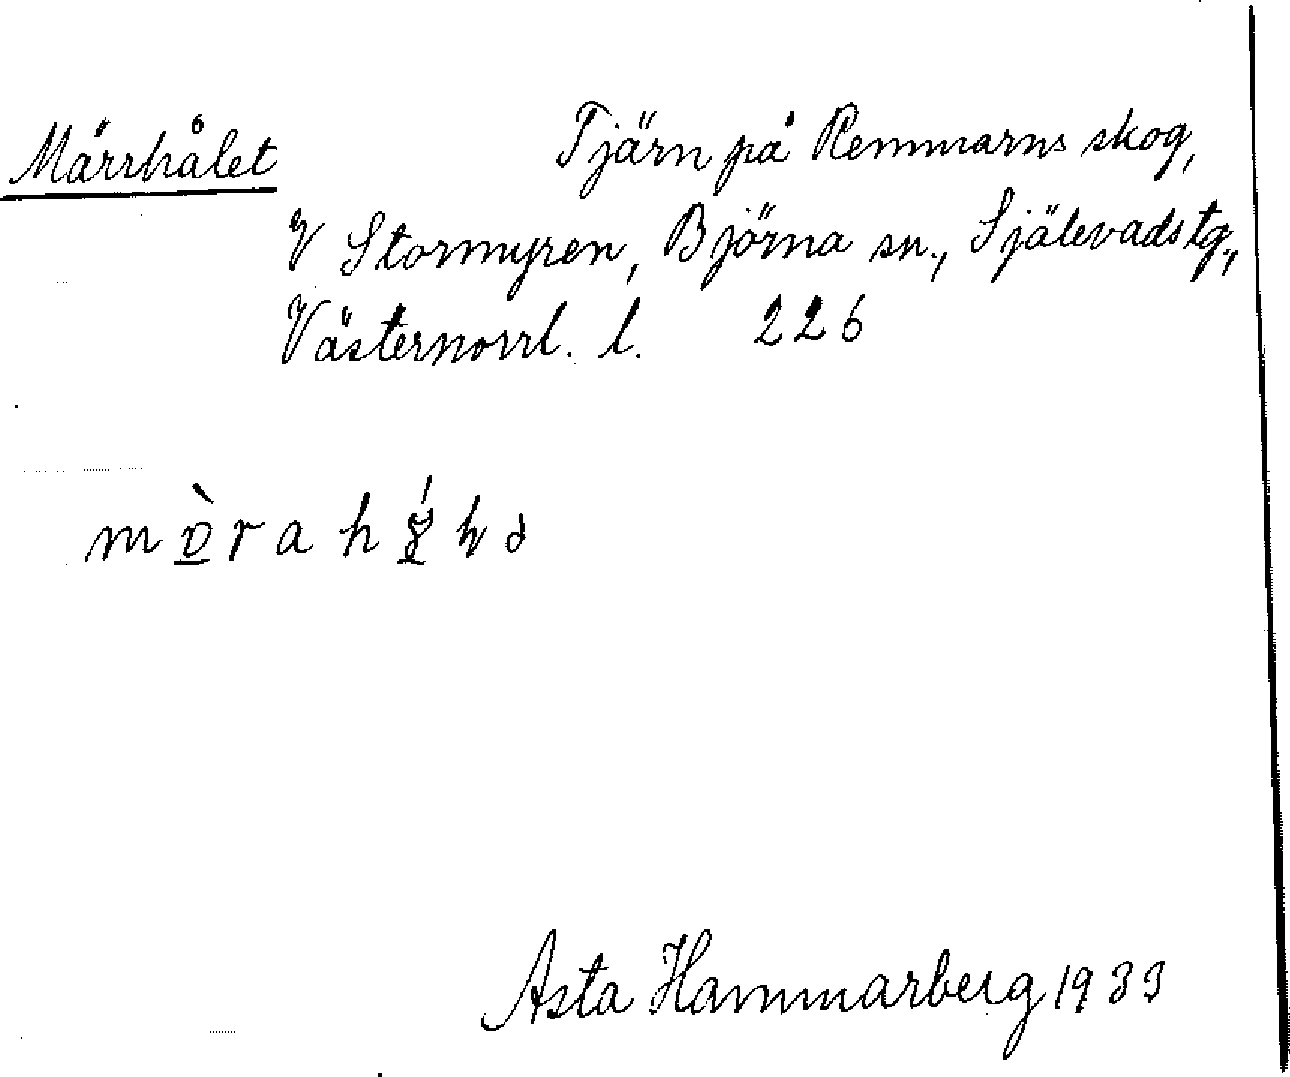 Märrhålet Tjärn på Remmarns skog,
V Stormyren, Björna sn., Själevads tg,
Västernorrl. l. 226
Asta Hammarberg 1933